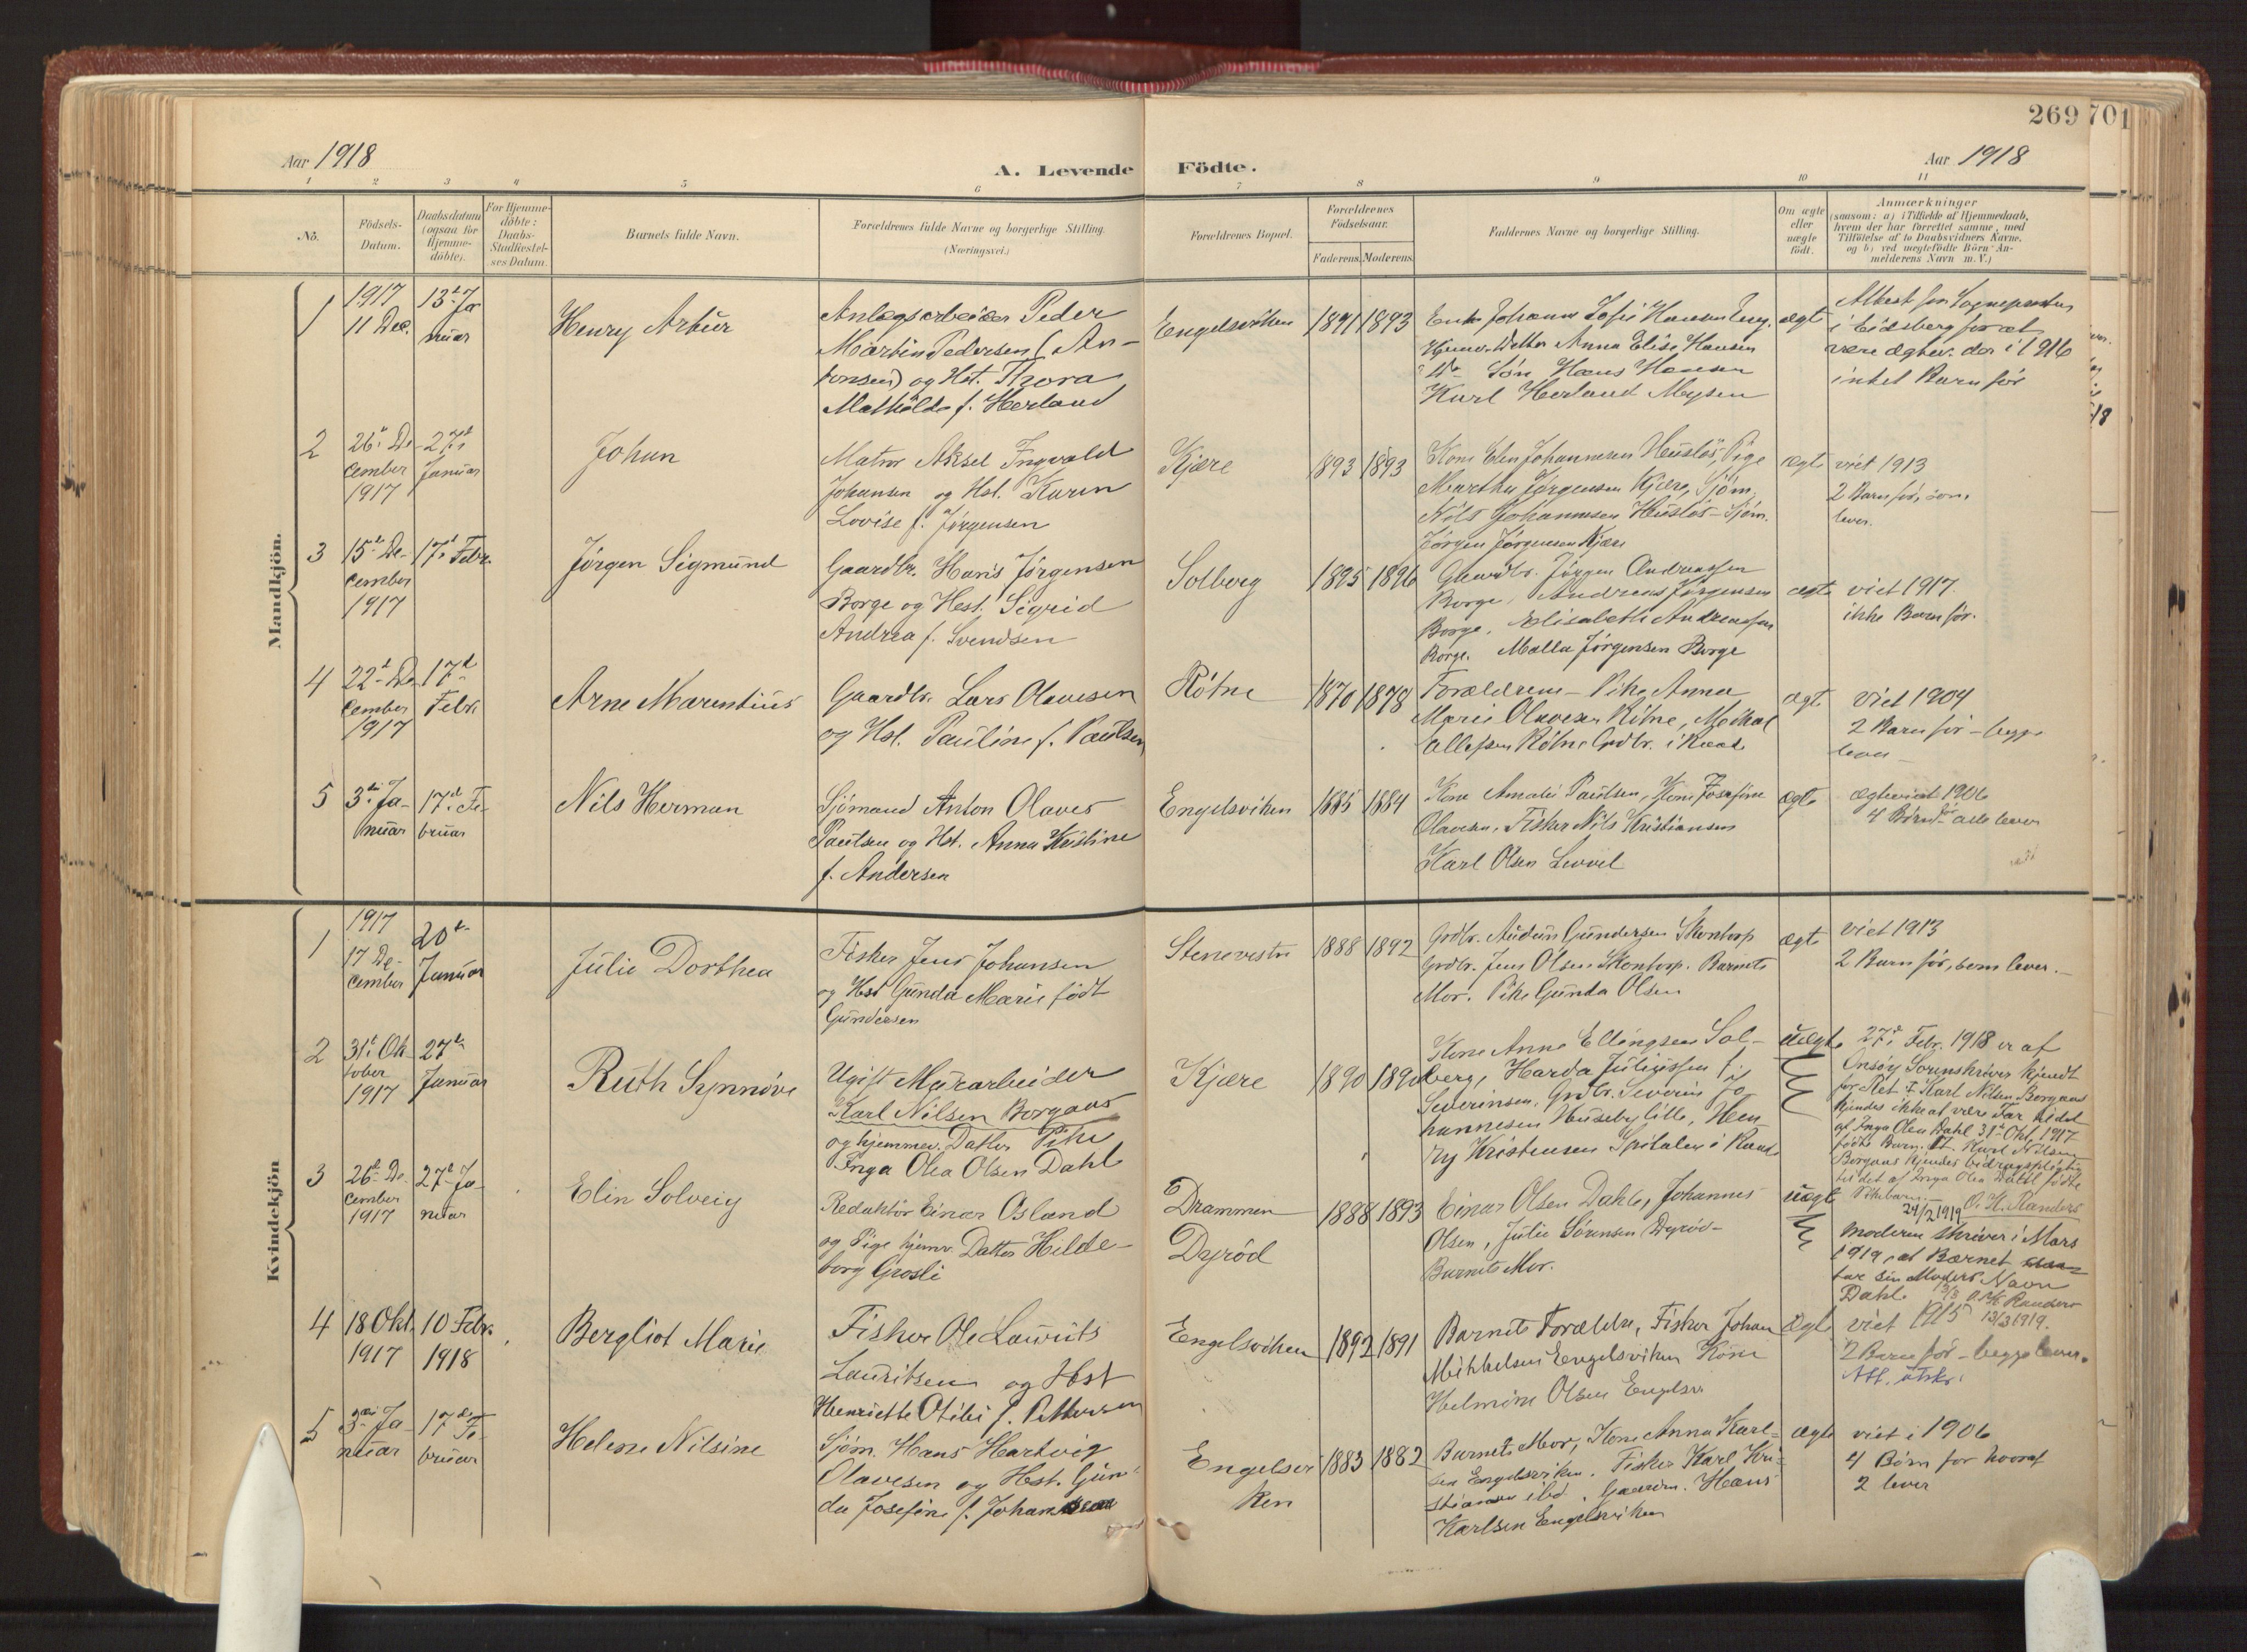 269 701
Aar 1918
A. Levende Födte.
Aar 1918
1 2 3 4 5 6 7 8 9 10 11
No.
Födsels-
Datum.
Daabsdatum
(ogsaa för
Hjemme-
döbte).
For Hjemme-
döbte:
Daabs-
Stadfæstel-
ses Datum.
Barnets fulde Navn.
Forældrenes fulde Navne og borgerlige Stilling.
(Næringsvei.)
Forældrenes Bopæl.
Forældrenes
Födselsaar.
Faderens. Moderens.
Faddernes Navne og borgerlige Stilling.
Om ægte
eller
uægte
födt.
Anmærkninger
(saasom: a) i Tilfælde af Hjemmedaab,
hvem der har forrettet samme, med
Tilföielse af to Daabsvidners Navne,
og b) ved uægtefödte Börn An-
melderens Navn m. V.)
Mandkjön.
1
1917
11 Dec.
13de Ja
nuar
Henry Artur
Anlægsarbeider Peder
Martin Pedersen (An-
tonsen) og Hst. Thora
Mathilde f. Herland
Engelsviken
1891 1893
Enke Johanne Sofie Hansen Eng.
Hjemv. Datter Anna Elise Hansen
Søn Hans Hansen
Karl Herland Mysen
ægte
Attest fra Sognepresten
i Eidsberg for at
være ægtev. der i 1916
intet Barn før
2
26de De
cember
1917
27de
Januar
Johan
Matros Aksel Ingvald
Johansen og Hst. Karen
Lovise f. Jørgensen
Kjære
1893 1893
Kone Elen Johannesen Huslös, Pige
Martha Jørgensen Kjære, Sjøm.
Nils Johannesen Huslös - Sjøm.
Jørgen Jørgensen Kjære
ægte
viet 1913
2 Barn før, som
lever.
3
15de De-
cember
1917
17de Febr.
Jørgen Sigmund
Gaardbr. Hans Jørgensen
Borge og Hst. Sigrid
Andrea f. Svendsen
Solberg
1895 1896
Gaardbr. Jørgen Andreassen
Borge, Andreas Jørgensen
Borge, Elisabeth Andreassen
Borge. Malla Jørgensen Borge
ægte
viet 1917.
ikke Barn før.
4
22de De
cember
1917
17de
Febr.
Arne Marentius
Gaardbr. Lars Olavesen
og Hst. Pauline f. Paulsen
Rötne
1870 1878
Forældrene - Pike Anna
Marie Olavesen Rötne, Mikal
Ellefsen Rötne Grdbr. i Raade
ægte
viet 1904
2 Barn før - begge
lever -
5
3die Ja-
nuar
17de Fe-
bruar
Nils Herman
Sjömand Anton Olaves
Paulsen og Hst. Anna Kristine
f. Andersen
Engelsviken
1885 1884
Kone Amalie Paulsen, Kone Josefine
Olavesen, Fisker Nils Kristiansen
Karl Olsen
ægte
ægteviet 1906
4 Børn før alle lever
Kvindekjön
1
1917
17 De-
cember
20de
Januar
Julie Dorthea
Fisker Jens Johansen
og Hst Gunda Marie født
Gundersen
Stenevesten
1888 1892
Grdbr. Audun Gundersen Skontorp
Grdbr. Jens Olsen Skontorp. Barnets
Mor. Pike Gunda Olsen
ægte
viet 1913
2 Barn før, som lever. -
2
31te Ok
tober
1917
27de
Januar
Ruth Synnöve
Ugift Murarbeider
Karl Nilsen Borgaas
og hjemmev. Datter Pike
Inga Olea Olsen Dahl
Kjære
1890 1890
Kone Anne Ellingsen Sol-
berg, Harda
Severinsen, Grdbr. Severin Jo
hannesen Huseby lille, Hen
ry Kristensen Spitalen i Raade
uægte
27de Febr. 1918 er af
Onsøy Sorenskriver kjendt
for Ret: Karl Nilsen Borgaas
kjendes ikke at være Far til det
af Inga Olea Dahl 31te Okt. 1917
fødte Barn. Karl Nilsen
Borgaas kjendes bidragspligtig
til det af Inga Olea Dahl fødte
Pikebarn.
24/2 1919 O. K. Randers
3
26de De-
cember
1917
27de Ja
nuar
Elin Solveig
Redaktör Einar Osland
og Pige hjemv. Datter Hilde-
borg Grosli
Drammen
Dyröd
1888 1893
Einar Olsen Dahle, Johannes
Olsen, Julie Sörensen Dyröd -
Barnets Mor.
uægte
Moderen skriver i Mars
1919, at Barnet
bær sin Moders Navn
Dahl. 13/3 O. K. Randers
13/3 1919.
4
18 Okt.
1917
10 Febr.
1918
Bergliot Marie
Fisker Ole Laurits
Lauritsen og Hst
Henriette Otilie f. Pettersen
Engelsviken
1892 1891
Barnets Forældre, Fisker Johan
Mikkelsen Engelsviken Kone
Helmine Olsen Engelsv
ægte
viet 1915
2 Barn før - begge lever.
Att. utskr.
5
3die Ja-
nuar
17de Fe-
bruar
Helene Nilsine
Sjøm. Hans Hartvig
Olavesen og Hst. Gun-
da Josefine f. Johansen
Engelsvi
ken
1883 1882
Barnets Mor, Kone Anna Karl-
sen Engelsviken. Fisker Karl Kri-
stiansen ibd. Gaardm. Hans
Karlsen Engelsviken
ægte
viet i 1906
4 Börn før hvoraf
2 lever